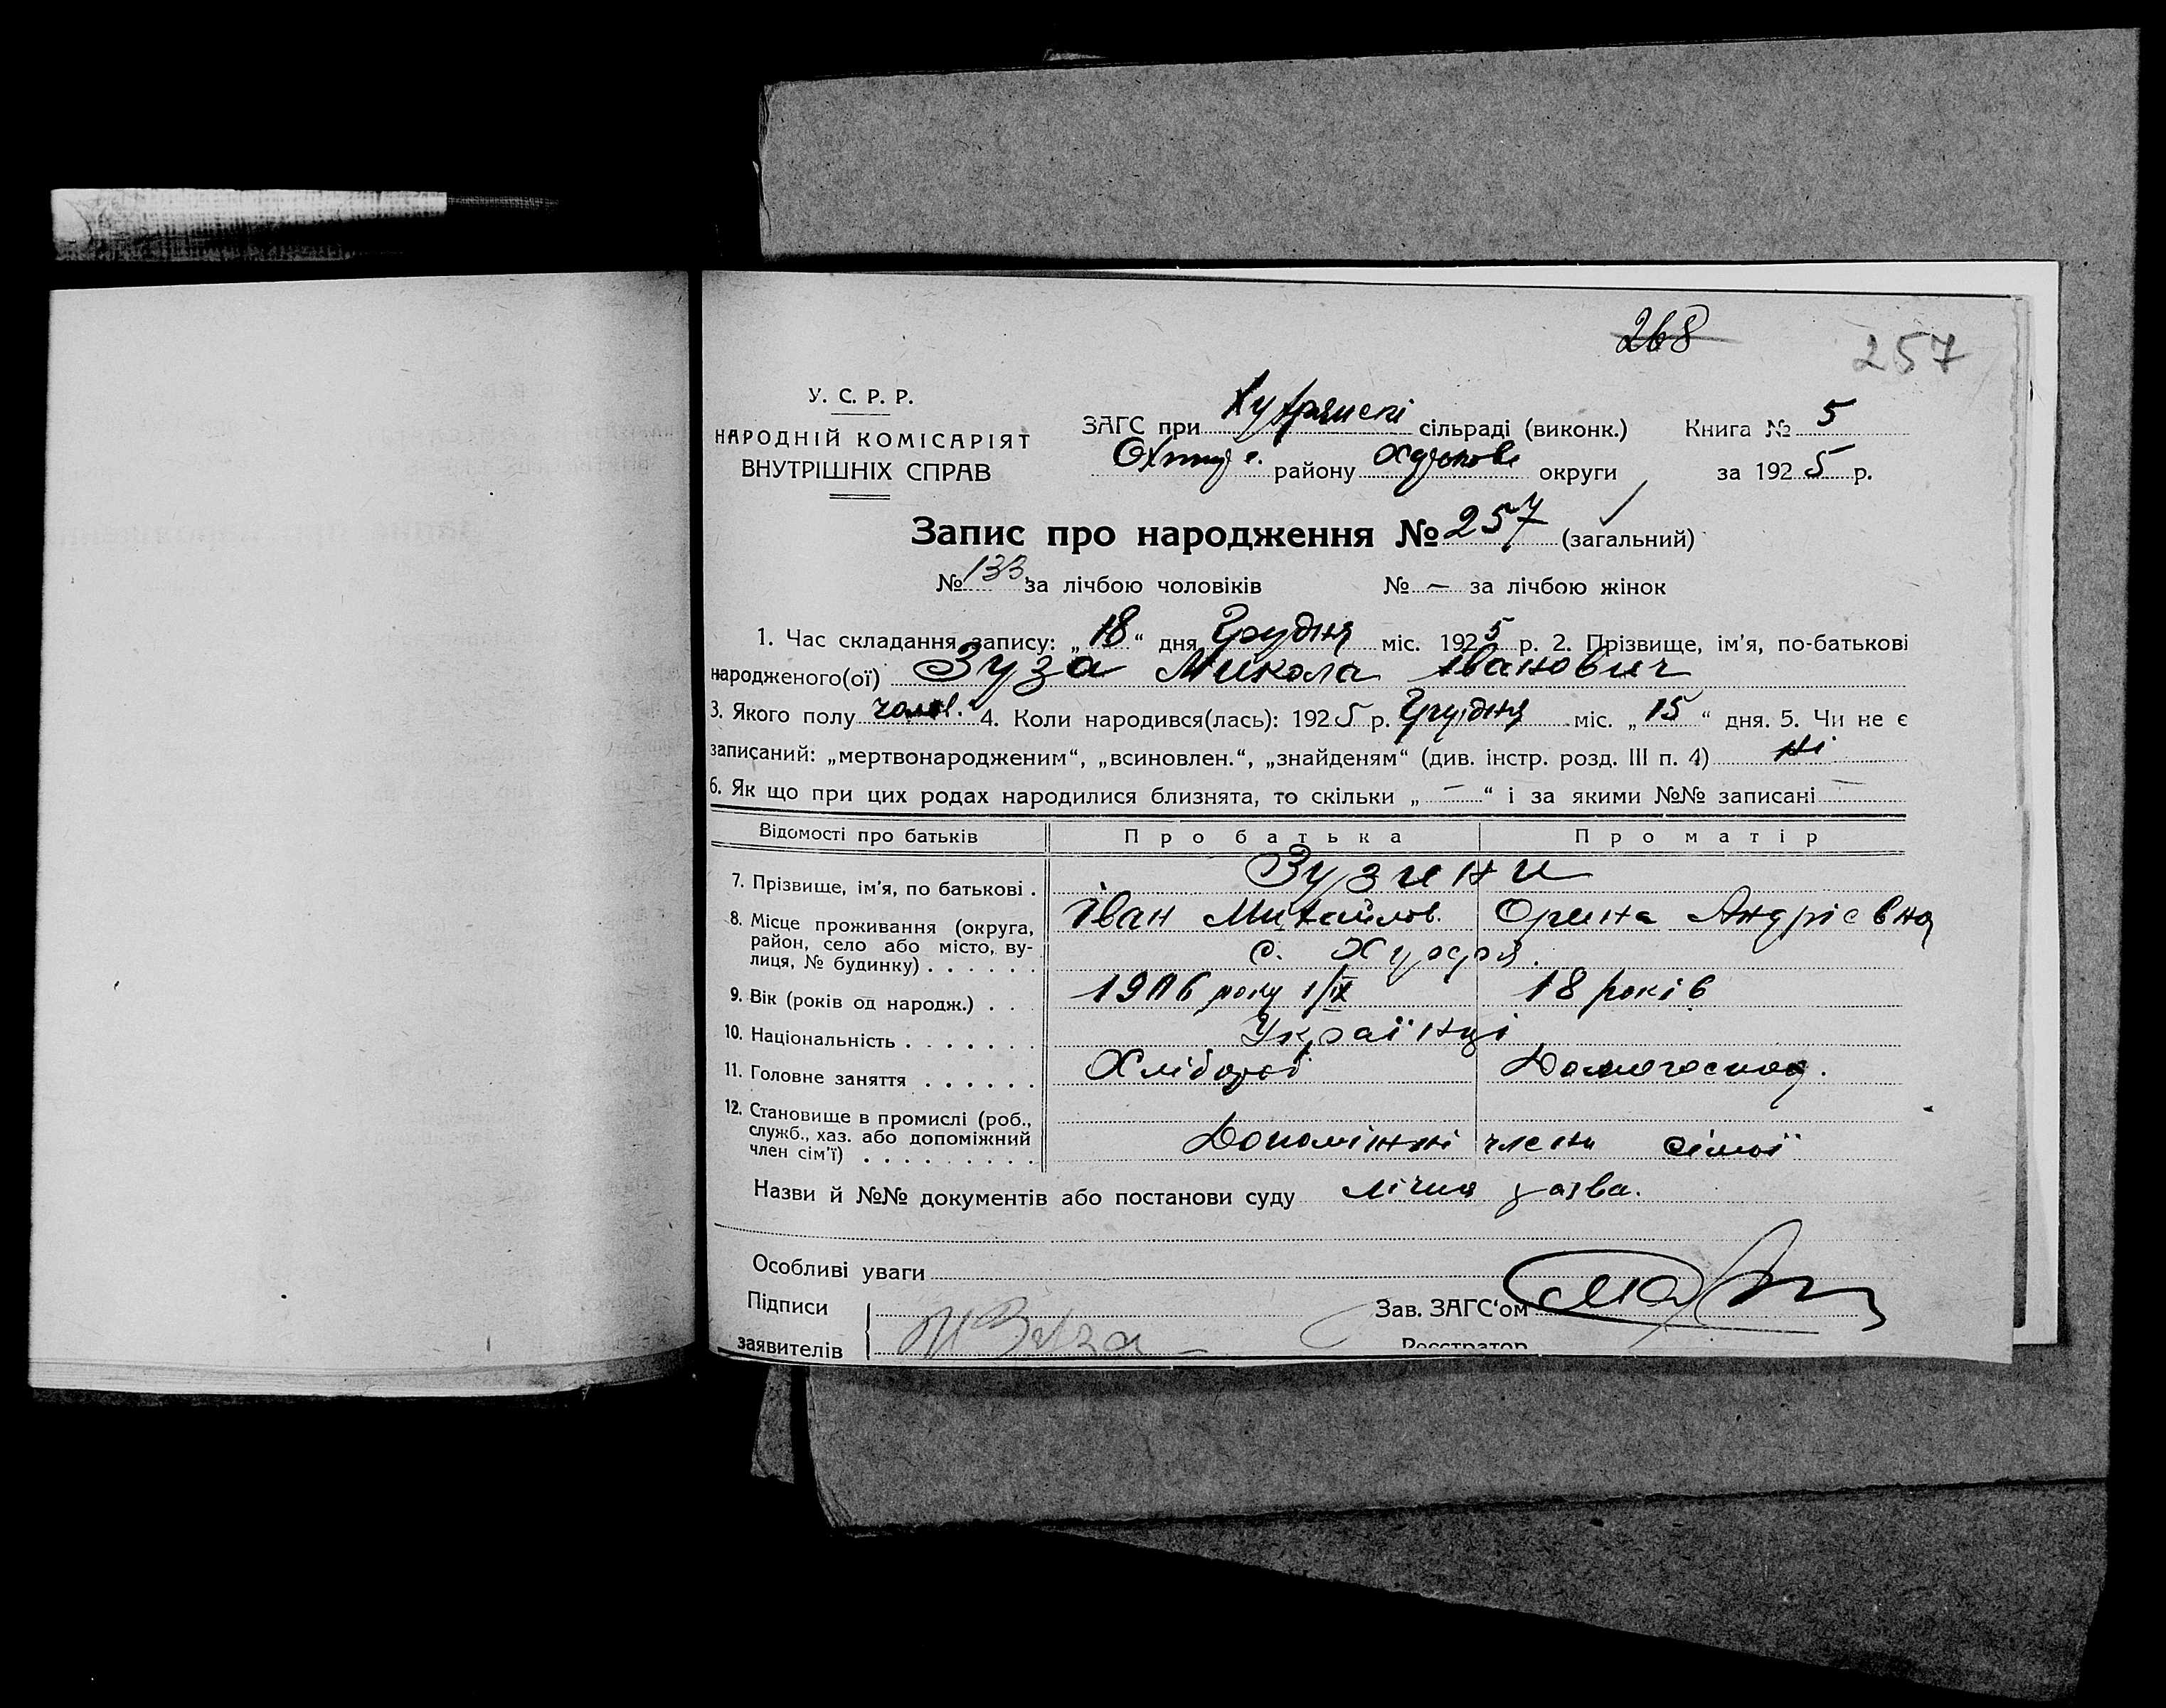 268
257
У. С. Р. Р.
НАРОДНІЙ КОМІСАРІЯТ
ВНУТРІШНІХ СПРАВ
ЗАГС при сільраді (виконк.) Книга № 5
району округи за 1925 р.
Запис про народження № 257 (загальний)
№ 133 за лічбою чоловіків № — за лічбою жінок
1. Час складання запису: „18“ дня Грудня міс. 1925 р. 2. Прізвище, ім'я, по-батькові
народженого(ої) Зуза Микола Іванович
3. Якого полу чолов. 4. Коли народився(лась): 1925 р. Грудня міс. „15“ дня. 5. Чи не є
записаний: „мертвонародженим“, „всиновлен.“, „знайденям“ (див. інстр. розд. III п. 4) ні
6. Як що при цих родах народилися близнята, то скільки „—“ і за якими №№ записані —
Відомості про батьків Про батька Про матір
7. Прізвище, ім'я, по батькові . Зузини
Іван Михайлов. Орина Андрієвна
8. Місце проживання (округа,
район, село або місто, ву-
лиця, № будинку) . . . . . . с.
9. Вік (років од народж.) . . . 1906 року 1/IX 18 років
10. Національність . . . . . . . Українці
11. Головне заняття . . . . . . Хлібороб Домогоспод.
12. Становище в промислі (роб.,
служб., хаз. або допоміжний
член сім'ї) . . . . . . . . . Допоміжні члени сімої
Назви й №№ документів або постанови суду лічна заява.
Особливі уваги
Підписи
Зав. ЗАГС'ом
заявителів Зуза
Реєстратор